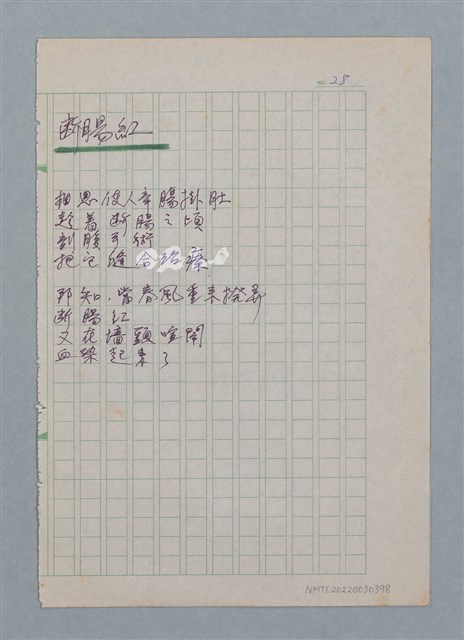 28
断腸紅
相思使人牵腸掛肚
趁着断腸之頃
剖腹手術
把它縫合治療
那知．當春風重来撩弄
断腸红
又在墙頭喧鬧
血染起来了
NMTL20220030398